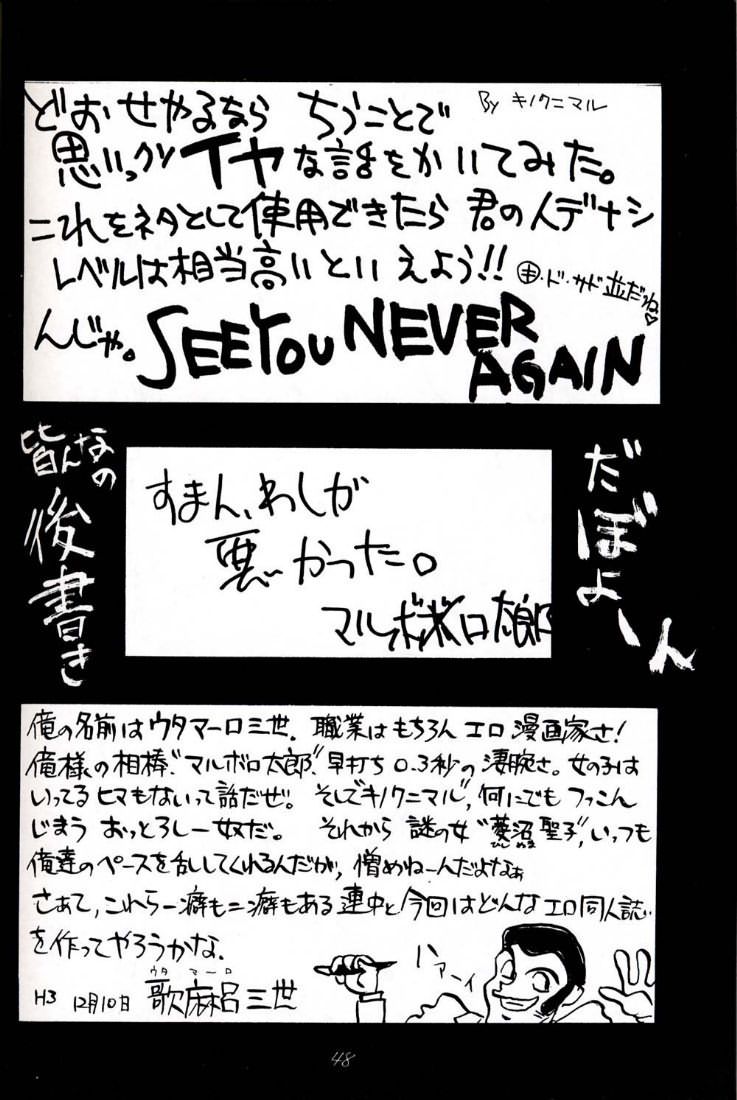 どおせやるなら ちうことで By キノクニマル
思いっクソ イヤな話をかいてみた。
これをネタとして使用できたら 君の人デナシ
レベルは相当高いといえよう!! ・ド・サド並だね♡
んじゃ。SEE YOU NEVER
AGAIN
皆んなの
後書き
すまん、わしが
悪かった。
マルボボロ太郎
だぼよーん
俺の名前はウタマーロ三世。職業はもちろん エロ漫画家さ!
俺様の相棒"マルボロ太郎"、早打ち0.3秒の凄腕さ。女の子は
いってるヒマもないって話だぜ。そして"キノクニマル"、何にでもつっこん
じまう おっとろしー奴だ。 それから 謎の女"菱沼聖子"、いっつも
俺達のペースを乱してくれるんだが、憎めねーんだよなぁ
さあて、これら一癖も二癖もある連中と今回はどんなエロ同人誌
を作ってやろうかな。
ハァーイ
H3 12月10日 歌麻呂三世
ウタマーロ
48